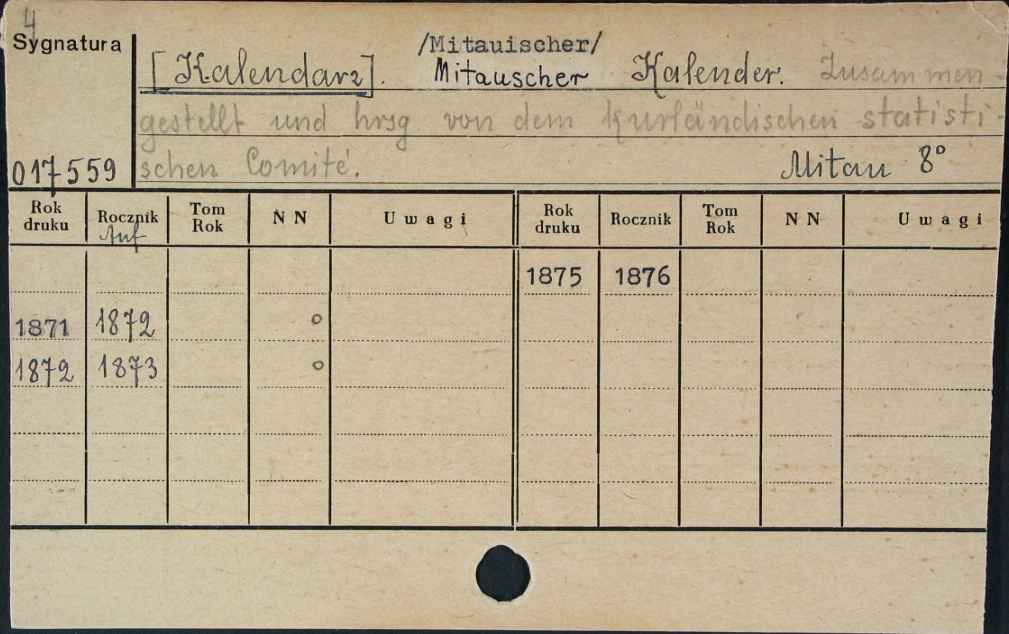 4
Sygnatura
/Mitauischer/
[Kalendarz]. Mitauscher Kalender. Zusammen-
gestellt und hrsg von dem Kurländischen statisti-
schen Comité.
Mitau 8°
017559
Rok druku Rocznik Tom Rok NN Uwagi Rok druku Rocznik Tom Rok NN Uwagi
1875 1876
1871 1872 o
1872 1873 o